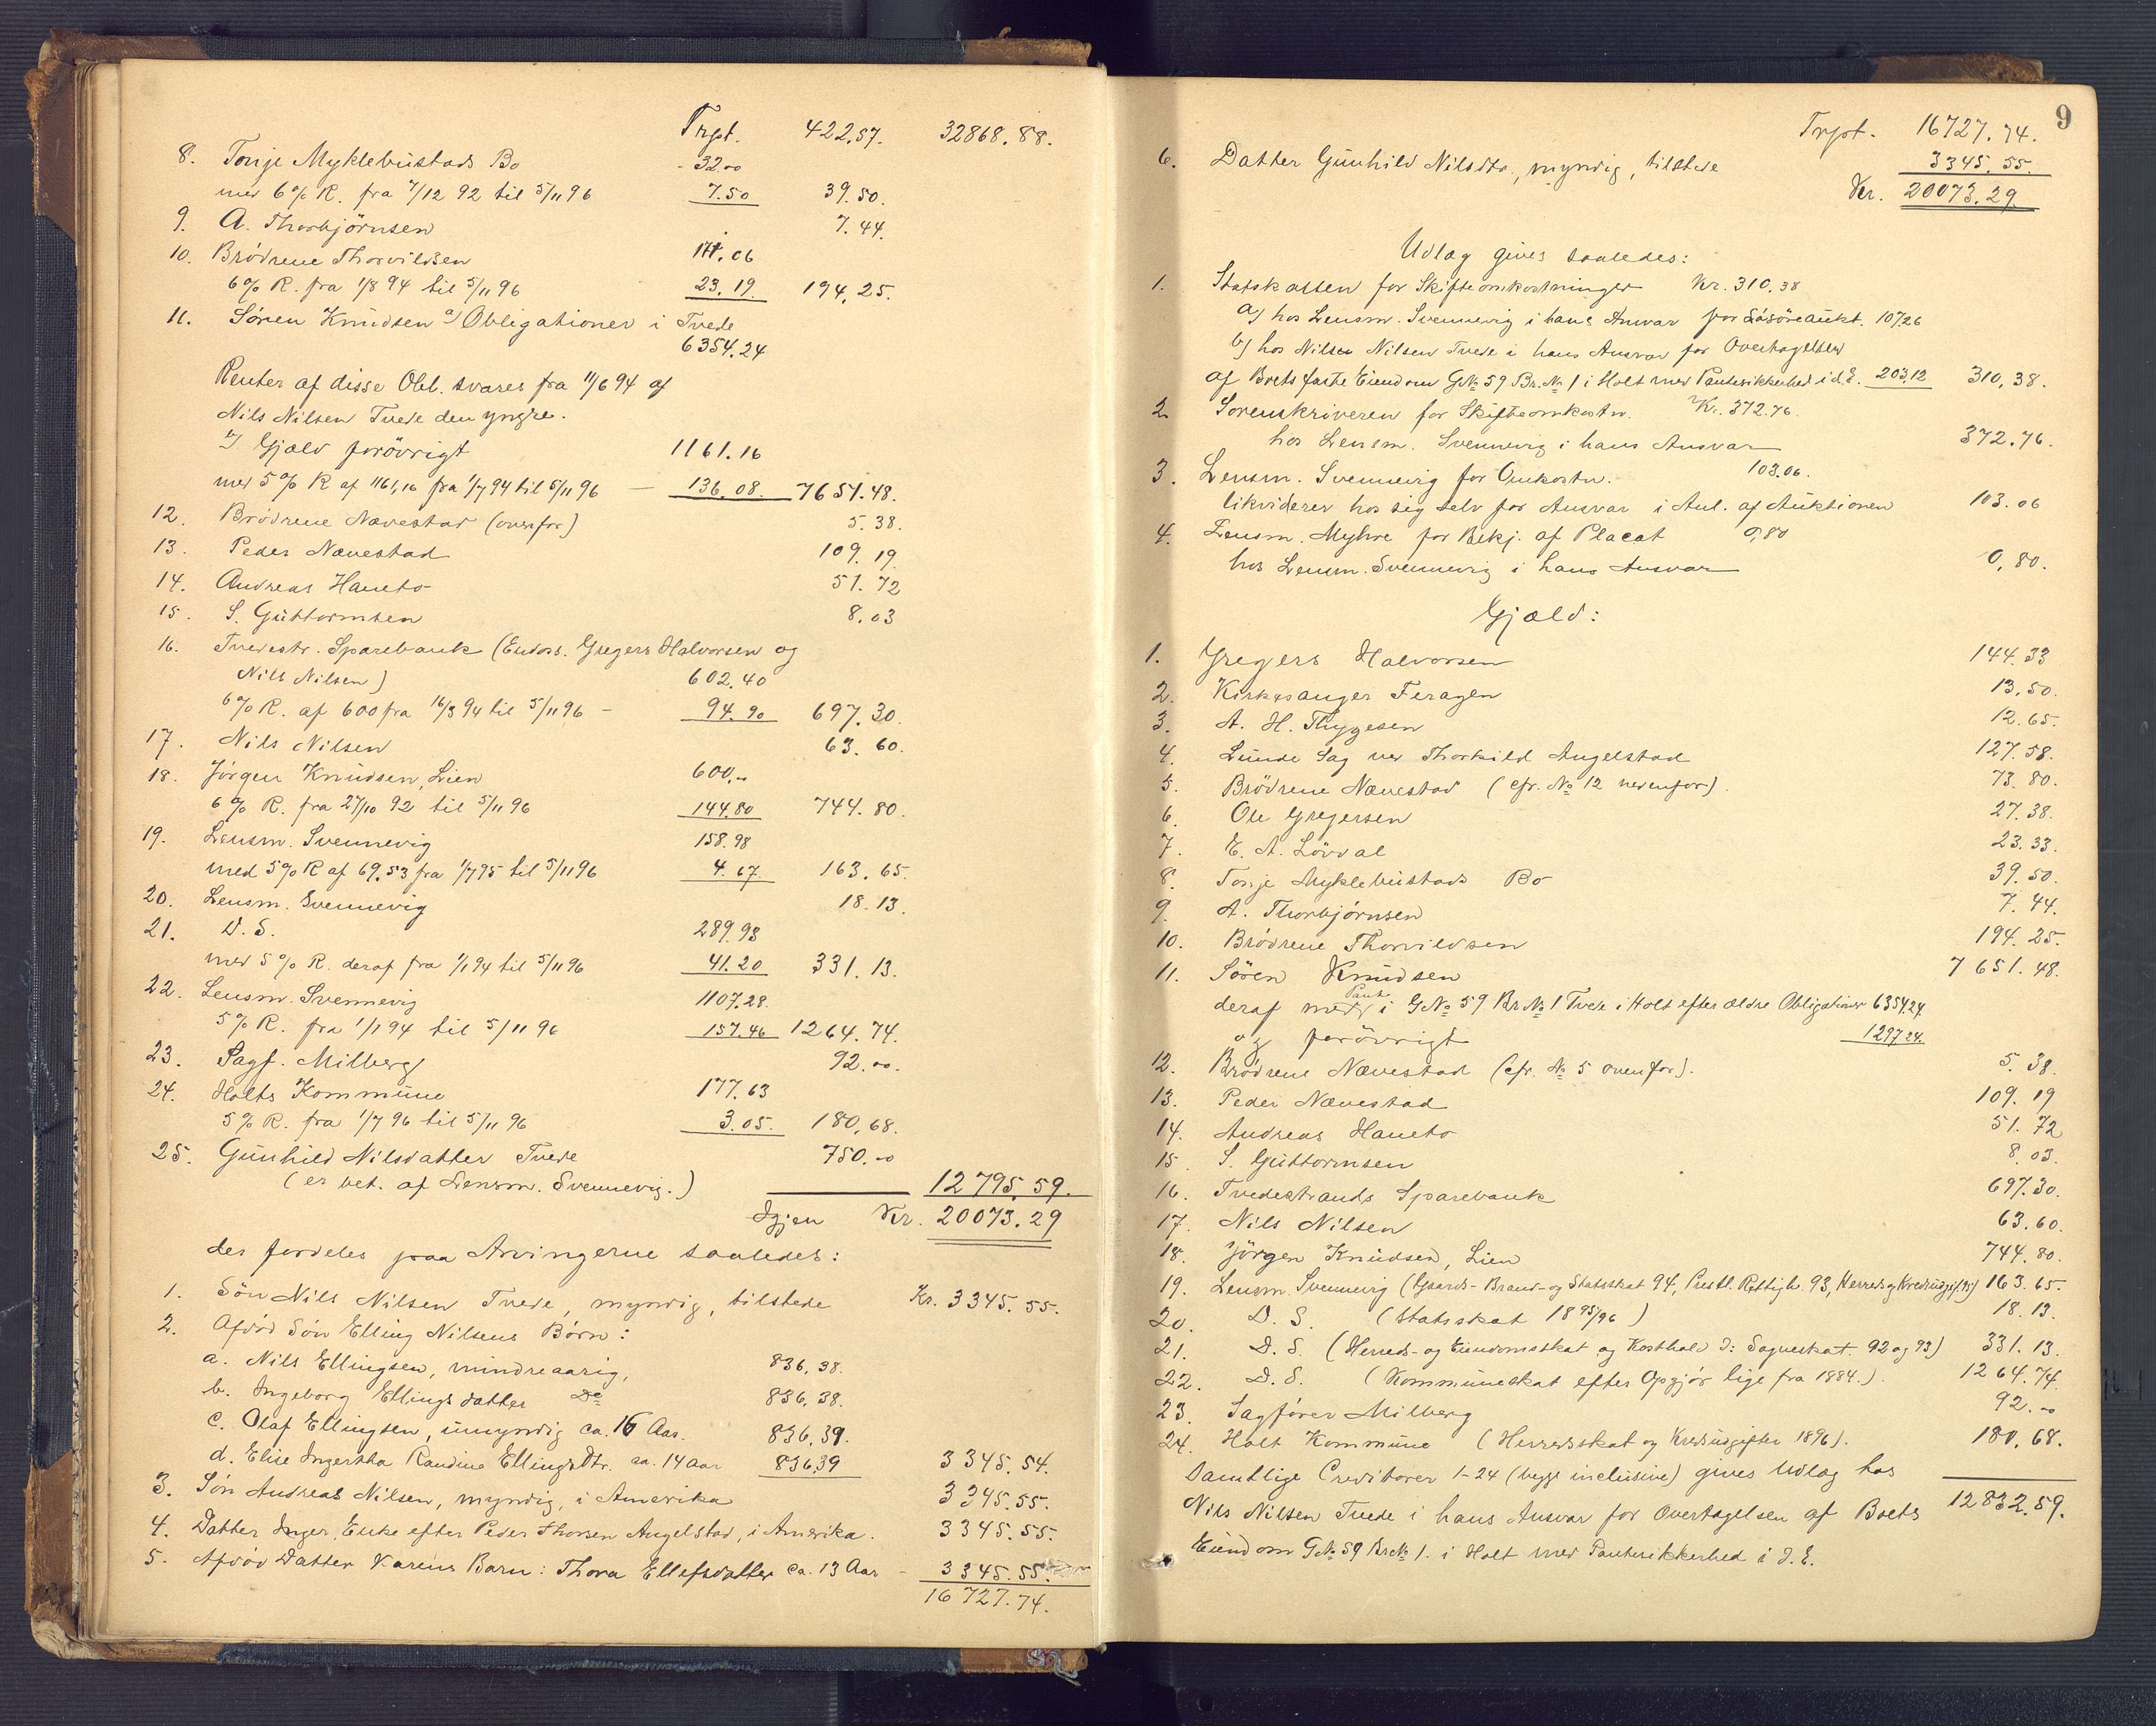 Trpt. 422,57. 32868.88.
8. Tonje Myklebustads Bo - 32.00
med 6% R. fra 7/12 92 til 5/11 96 7.50 39.50.
9. A. Thorbjörnsen 7.44.
10. Brødrene Thorvildsen 171.06
6% R. fra 1/8 94 til 5/11 96 23.19. 194,25.
11. Sören Knudsen a) Obligationer i Tvede
6354.24
Renter af disse Obl. svares fra 11/6 94 af
Nils Nilsen Tvede den yngre.
b) Gjæld forövrigt 1161.16
med 5% R af 1161,16 fra 1/7 94 til 5/11 96 — 136.08. 7651.48.
12. Brödrene Nævestad (ovenfor) 5.38.
13. Peder Nævestad 109.19.
14. Andreas Haneto 51.72
15. S. Guttormsen 8.03
16. Tvedestr. Sparebank (Endoss. Gregers Halvorsen og
Nils Nilsen) 602.40
6% R. af 600 fra 16/3 94 til 5/11 96 - 94.90 697.30.
17. Nils Nilsen 63.60.
18. Jörgen Knudsen, Lien 600,00
6% R. fra 27/10 92 til 5/11 96 144.80 744.80.
19. Lensm. Svennevig 158.98
med 5% R af 69.53 fra 1/7 95 til 5/11 96 4.67. 163.65.
20. Lensm. Svennevig 18.13.
21. D. S. 289.93
med 5% R. deraf fra 1/1 94 til 5/11 96 41.20 331.13.
22. Lensm. Svennevig 1107.28.
5% R. fra 1/1 94 til 5/11 96 157.46 1264.74.
23. Sagf. Milberg 92.00.
24. Holts Kommune 177.63
5% R. fra 1/7 96 til 5/11 96 3.05. 180,68.
25. Gunhild Nilsdatter Tvede 750.00
(er bet. af Lensm. Svennevig.) 12795.59.
Igjen Kr. 20073.29
der fordeles paa Arvingerne saaledes:
1. Sön Nils Nilsen Tvede, myndig, tilstede Kr. 3345.55.
2. Afdöd Sön Elling Nilsens Børn:
a. Nils Ellingsen, mindreaarig, 836,38.
b. Ingeborg Ellingsdatter Do 836,38.
c. Olaf Ellingsen, umyndig ca. 16 Aar. 836,39.
d. Elise Ingertha Randine Ellingsdtr. ca. 14 Aar 836,39 3345.54.
3. Sön Andreas Nilsen, myndig, i Amerika 3345.55.
4. Datter Inger, Enke efter Peder Thorsen Angelstad, i Amerika. 3345.55.
5. Afdöd Datter Karens Barn: Thora Ellefsdatter ca. 13 Aar - 3345.55.
16727.74.
9
Trpt. 16727.74.
6. Datter Gunhild Nilsdtr., myndig, tilstede 3345.55.
Kr. 20073.29
Udlæg gives saaledes:
1. Statskassen for Skifteomkostninger Kr. 310.38
a) hos Lensm. Svennevig i hans Ansvar for Lösöreaukt. 107.26
b) hos Nils Nilsen Tvede i hans Ansvar for Overtagelsen
af Boets faste Eiendom G№ 59 Br.№ 1 i Holt med Pantesikkerhed i d. E. 203,12 310,38.
2. Sorenskriveren for Skifteomkostn. Kr. 372.76.
hos Lensm. Svennevig i hans Ansvar 372.76.
3. Lensm. Svennevig for Omkostn. 103.06.
likviderer hos sig selv for Ansvar i Anl. af Auktionen 103.06
4. Lensm. Myhre for Bekj. af Placat 0,80
hos Lensm. Svennevig i hans Ansvar 0,80.
Gjæld:
1. Gregers Halvorsen 144.33
2. Kirkesanger Feragen 13.50.
3. A. H. Thygesen 12.65.
4. Lunde Sag ved Thorkild Angelstad 127.58.
5. Brödrene Nævestad (cfr. № 12 nedenfor). 73.80.
6. Ole Gregersen 27.38.
7. E. A. Lövdal 23.33.
8. Tonje Myklebustads Bo 39.50.
9. A. Thorbjörnsen 7.44.
10. Brödrene Thorvildsen 194.25.
11. Sören Knudsen 7651.48.
deraf med Pant i G№ 59 Br№ 1 Tvede i Holt efter ældre Obligationer 6354.24.
og forövrigt 1297.24
12. Brödrene Nævestad (cfr. № 5 ovenfor). 5.38.
13. Peder Nævestad 109.19
14. Andreas Haneto 51.72
15. S. Guttormsen 8.03.
16. Tvedestrands Sparebank 697.30.
17. Nils Nilsen 63.60.
18. Jörgen Knudsen, Lien 744.80.
19. Lensm. Svennevig (Gaards- Brand- og Statsskat 94, Prestl. Rettigh. 93, Herreds og Kredsudgif. 95) 163.65.
20. D. S. (Statsskat 1895/96) 18.13.
21. D. S. (Herreds- og Eiendomsskat og Kosthold o: Sogneskat. 92 og 93) 331.13.
22. D. S. (Kommuneskat efter Opgjör lige fra 1884.). 1264.74.
23. Sagförer Milberg 92.00
24. Holt Kommune (Herredsskat og Kredsudgifter 1896). 180,68.
Samtlige Creditorer 1-24 (begge inclusive) gives Udlæg hos
Nils Nilsen Tvede i hans Ansvar for Overtagelsen af Boets 12832.59.
Eiendom G№ 59 Br№ 1. i Holt med Pantesikkerhed i d. E.